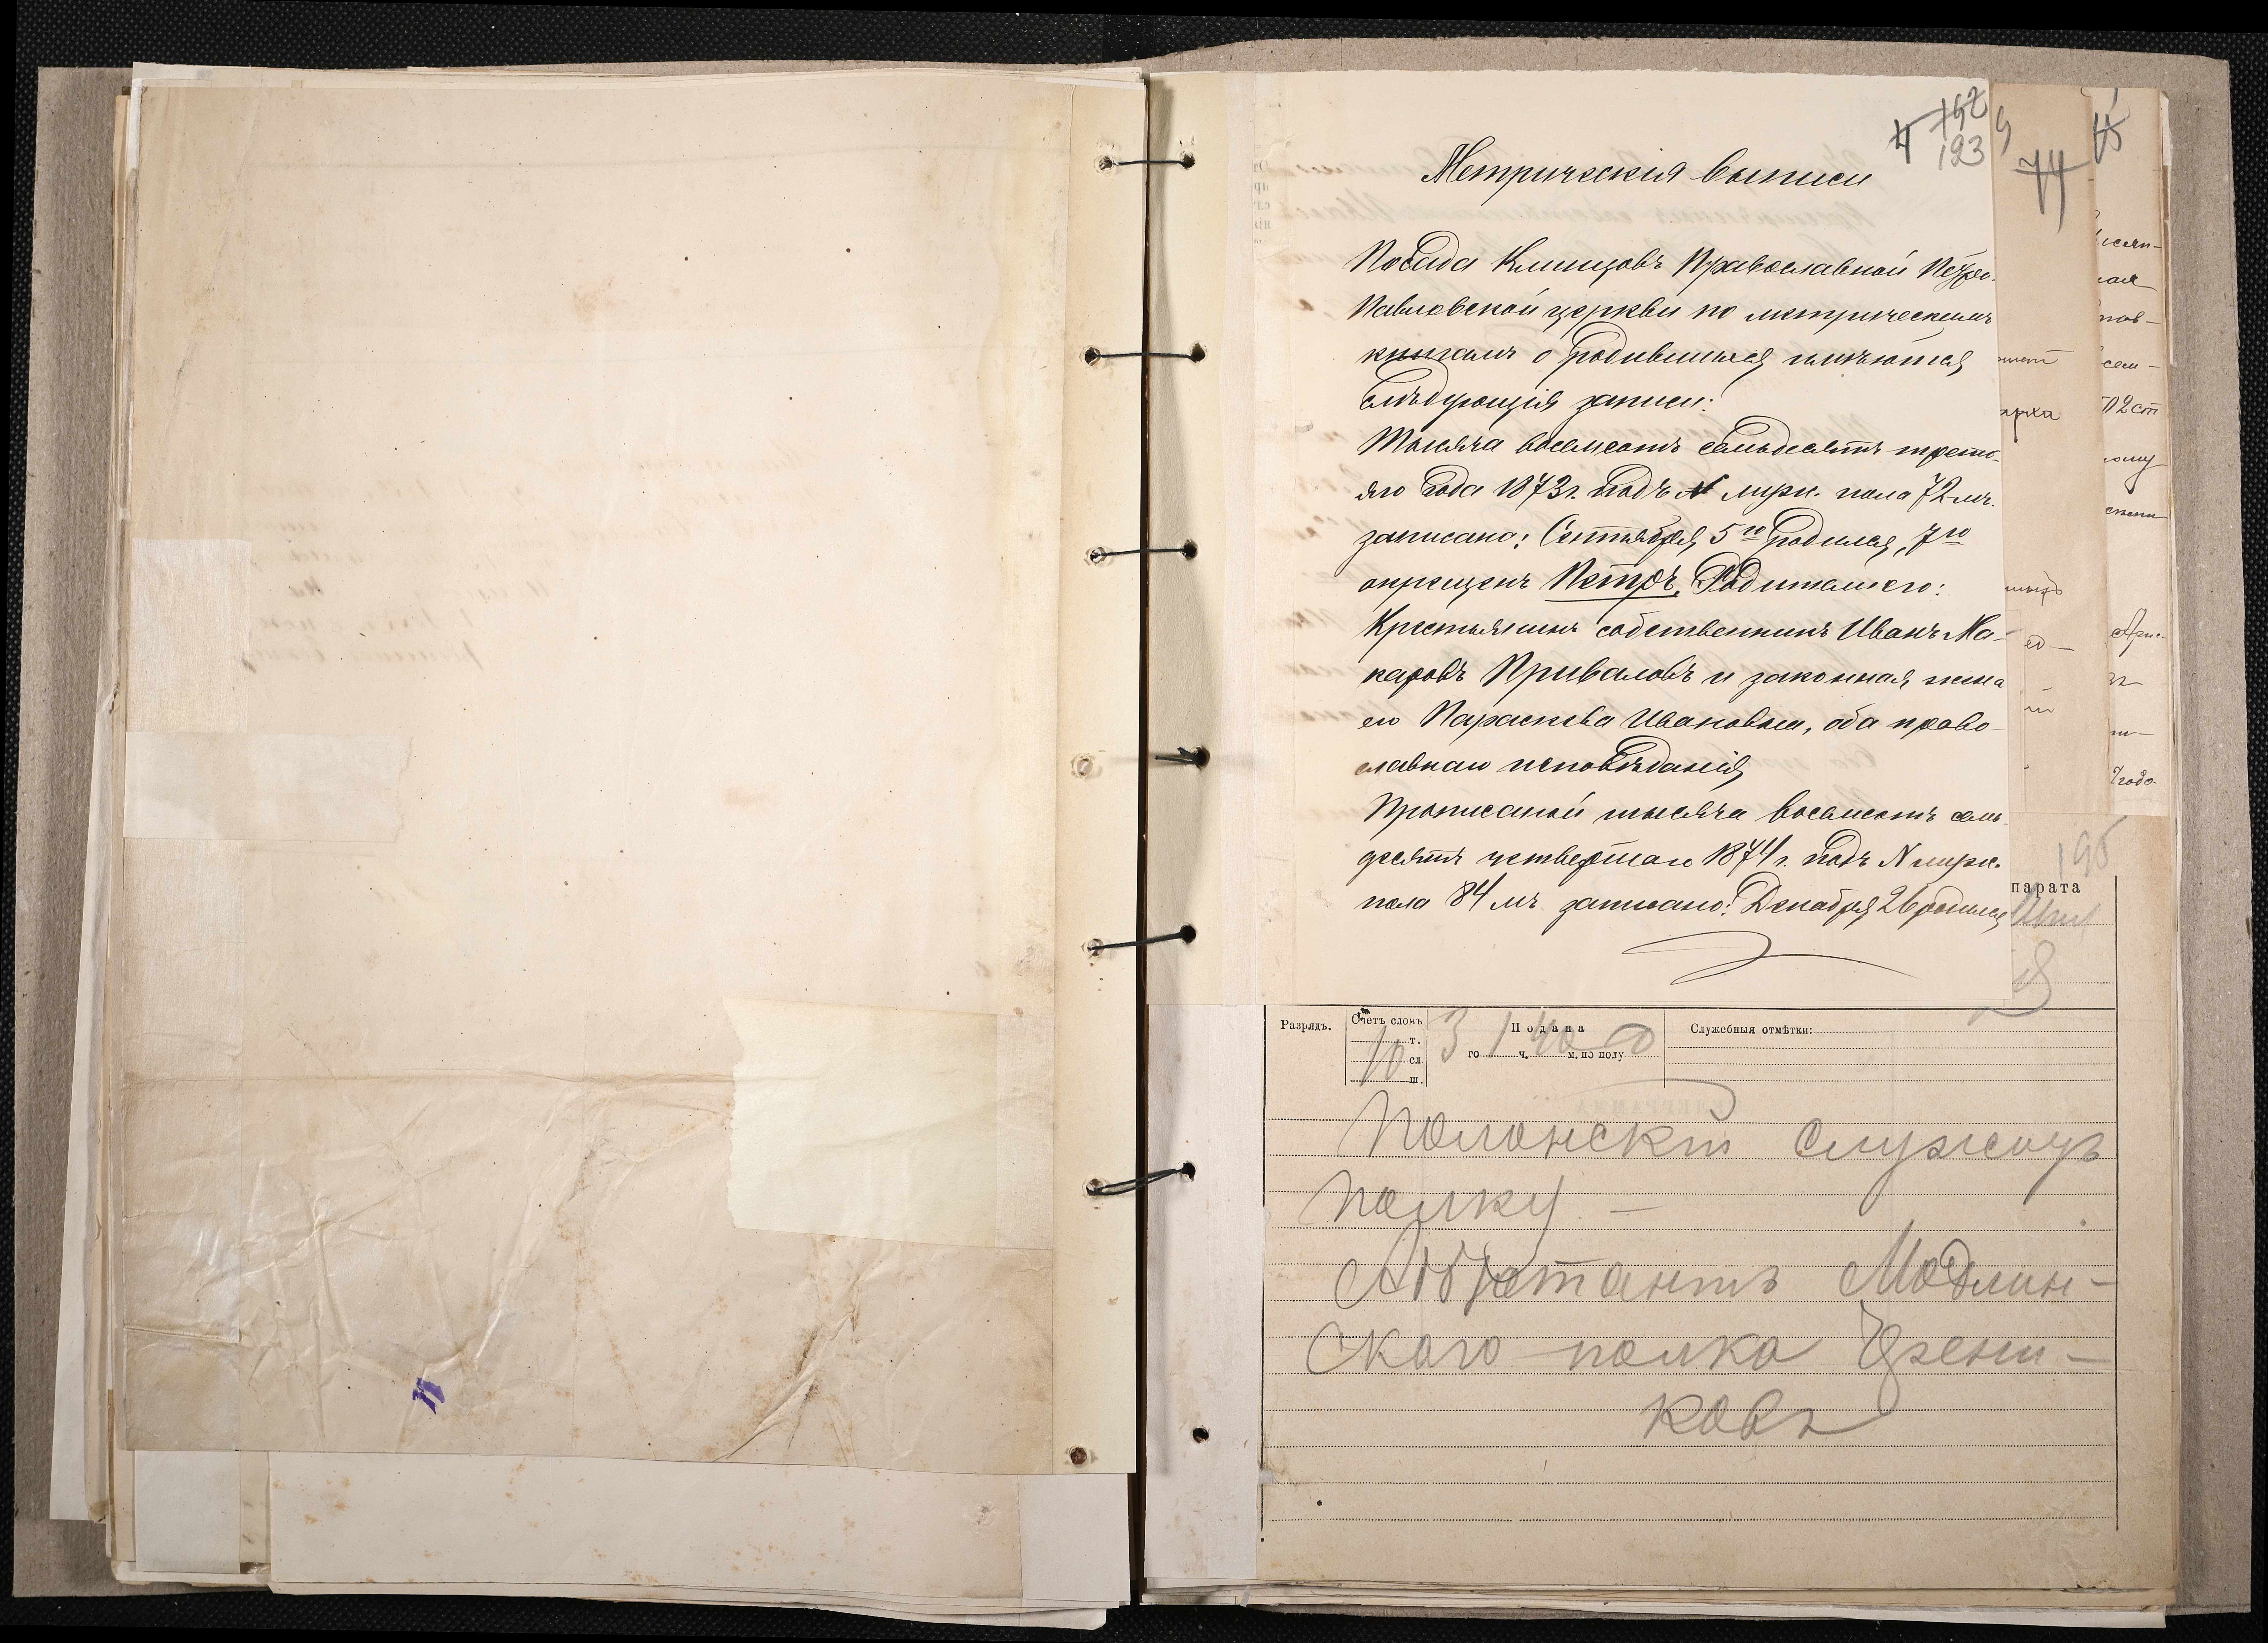 192
123
Метрическія выписи
Посада Клинцовъ Православной Петро-
Павловской церкви по метрическимъ
книгамъ о родившихся имѣются
слѣдующія записи:
Тысяча восемсотъ семьдесятъ треть-
яго года 1873 г. подъ № мужс. пола 72 мъ.
записано: Сентября 5го родился, 7го
окрещенъ Петръ. Родители его:
Крестьянинъ собственникъ Иванъ Ма-
каровъ Приваловъ и законная жена
его Параскева Ивановна, оба право-
славнаго исповѣданія
Прописаной тысяча восемсотъ семь-
десятъ четвертаго 1874 г. подъ N мужс.
пола 84 мъ записано: Декабря 26 родился
74
12 ст
года
195
парата
Разрядъ.
Счетъ словъ
т.
10 сл.
ш.
Подана
3 го 1 ч. 40 м. по полу
Служебныя отмѣтки:
Полонскій служитъ
полку —
Адъютантъ Модлин-
скаго полка
ковъ